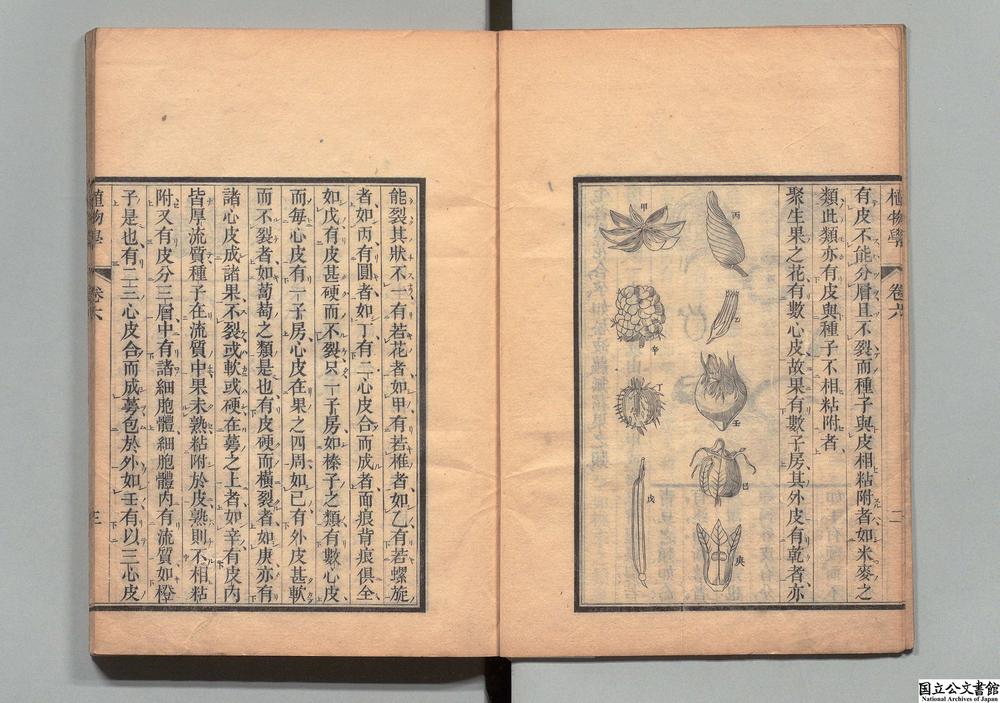 植物學 卷六 二
有皮不能分層且不裂而種子與皮相粘附者如米麥之
類此類亦有皮與種子不相粘附者
聚生果之花有數心皮故果有數子房其外皮有乾者亦
丙
甲
乙
辛
壬
丁
己
戊
庚
能裂其狀不一有若花者如甲有若椎者如乙有若螺旋
者如丙有圓者如丁有二心皮合而成者而痕背痕俱全
如戊有皮甚硬而不裂只一子房如榛子之類有數心皮
而每心皮有一子房心皮在果之四周如己有外皮甚軟
而不裂者如萄萄之類是也有皮硬而橫裂者如庚亦有
諸心皮成諸果不裂或軟或硬在萼之上者如辛有皮內
皆厚流質種子在流質中果未熟粘附於皮熟則不相粘
附又有皮分三層中有諸細胞體細胞體內有流質如橙
子是也有二三心皮合而成萼包於外如壬有以三心皮
植物學 卷六 三
国立公文書館
National Archives of Japan